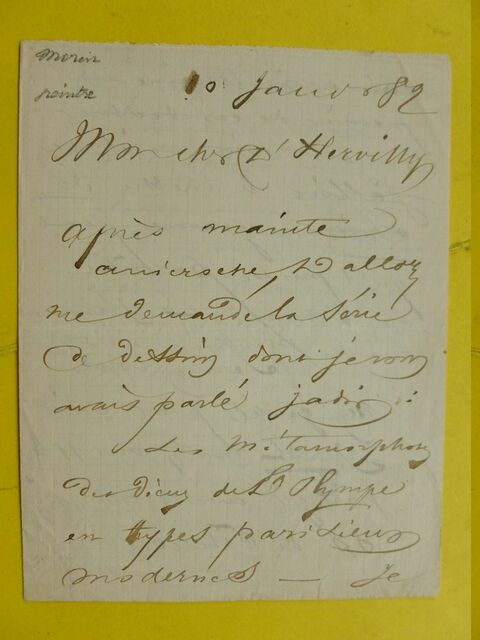 Morin
peintre
10 Janv 82
Mon cher d'Hervilly
après mainte
D alloz
me demande la série
de dessin dont je vous
avais parlé jadis :
Les Métamorphoses
des dieux de L'Olympe
en types parisiens
modernes — Je